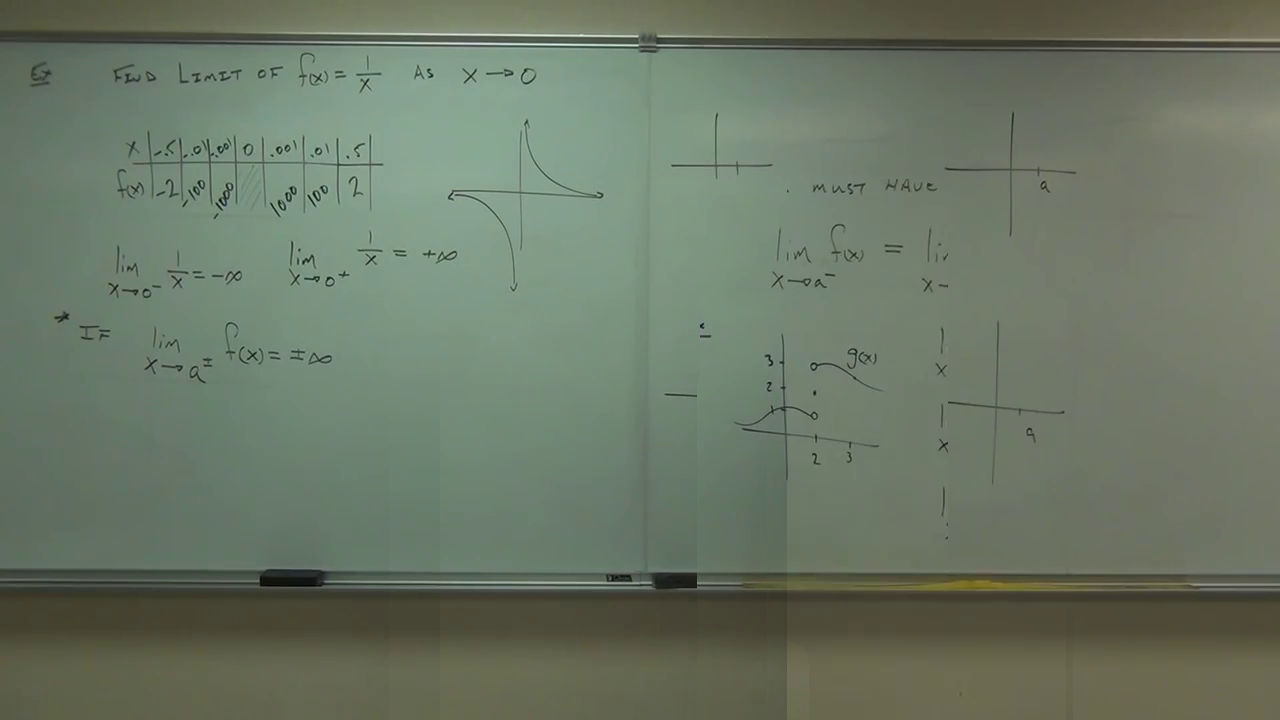 Ex FIND LIMIT OF f(x) = 1/x AS x → 0
x -.5 -.01 -.001 0 .001 .01 .5
f(x) -2 -100 -1000 1000 100 2
lim x→0⁻ 1/x = -∞ lim x→0⁺ 1/x = +∞
* IF lim x→a± f(x) = ±∞
a
. MUST HAVE
lim x→a⁻ f(x) =
3 g(x)
2
2 3
a